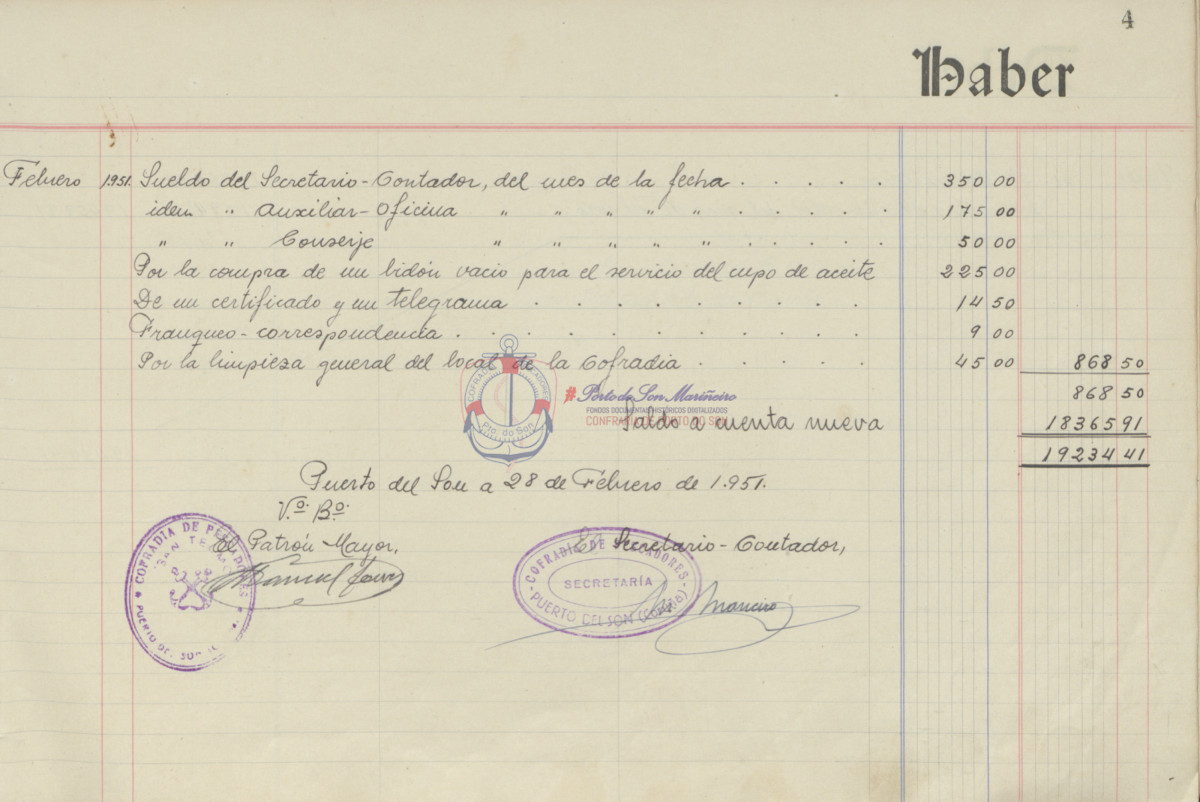 4
Haber
Febrero 1951. Sueldo del Secretario-Contador, del mes de la fecha . . . . 350 00
idem. " Auxiliar-Oficina " " " " " . . . . . 175 00
" " Conserje " " " " " . . . . . 50 00
Por la compra de un bidón vacio para el servicio del cupo de aceite 225 00
De un certificado y un telegrama . . . . . . . . . 14 50
Franqueo-correspondencia . . . . . . . . . . 9 00
Por la limpieza general del local de la Cofradia . . . . 45 00 868 50
868 50
Saldo a cuenta nueva 18365 91
19234 41
#Porto do Son Mariñeiro
FONDOS DOCUMENTAIS HISTÓRICOS DIXITALIZADOS
CONFRARÍA DE PORTO DO SON
Pto. do Son
Puerto del Son a 28 de Febrero de 1.951.
V.º B.º
El Patrón Mayor,
El Secretario-Contador,
COFRADIA DE PESCADORES
PUERTO DEL SON
Manuel
COFRADÍA DE PESCADORES
SECRETARÍA
PUERTO DEL SON (CORUÑA)